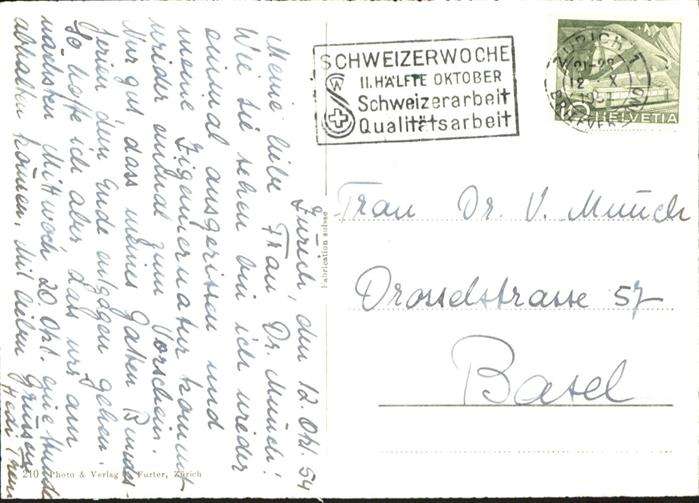 SCHWEIZERWOCHE
II. HÄLFTE OKTOBER
Schweizerarbeit
Qualitätsarbeit
ZÜRICH 1
21-22
12 X
BRIEFVERSAND
HELVETIA
Frau Dr. V. Münch
Drosselstrasse 57
Basel
Zürich, den 12. Okt. 54
Meine liebe Frau Dr. Münch!
Wie Sie sehen bin ich wieder
einmal ausgerissen und
meine Zigeunernatur kommt
wieder einmal zum Vorschein.
Nur gut dass meines Gatten Bundes-
ferien dem Ende entgegen gehen.
So hoffe ich aber dass wir am
nächsten Mittwoch 20. Okt. eine Stunde
abhalten können. Mit lieben Grüssen
Fabrication suisse
210 Photo & Verlag Furter, Zürich